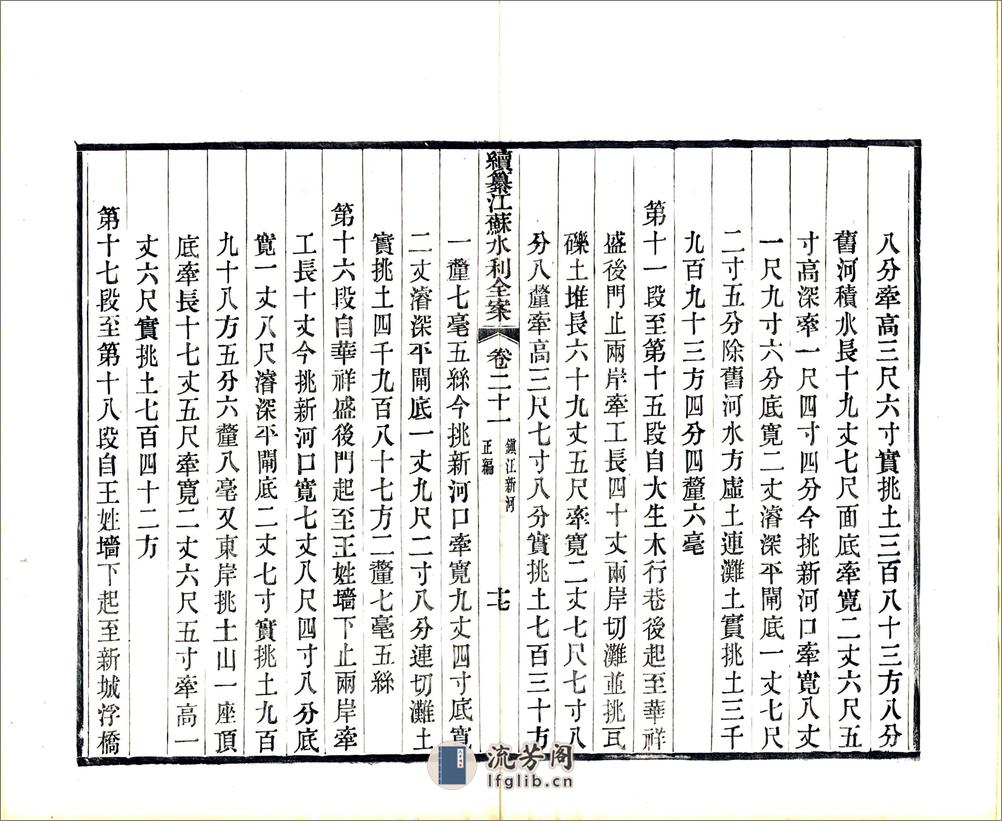 八分牽高三尺六寸實挑土三百八十三方八分
舊河積水長十九丈七尺面底牽寬二丈六尺五
寸高深牽一尺四寸四分今挑新河口牽寬八丈
一尺九寸六分底寬二丈濬深平閘底一丈七尺
二寸五分除舊河水方虛土連灘土實挑土三千
九百九十三方四分四釐六毫
第十一段至第十五段自大生木行巷後起至華祥
盛後門止兩岸牽工長四十丈兩岸切灘並挑瓦
礫土堆長六十九丈五尺牽寬二丈七尺七寸八
分八釐牽高三尺七寸八分實挑土七百三十方
續纂江蘇水利全案
卷二十一
鎮江新河
正編
十七
一釐七毫五絲今挑新河口牽寬九丈四寸底寬
二丈濬深平閘底一丈九尺二寸八分連切灘土
實挑土四千九百八十七方二釐七毫五絲
第十六段自華祥盛後門起至王姓墻下止兩岸牽
工長十丈今挑新河口寬七丈八尺四寸八分底
寬一丈八尺濬深平閘底二丈七寸實挑土九百
九十八方五分六釐八毫又東岸挑土山一座頂
底牽長十七丈五尺牽寬二丈六尺五寸牽高一
丈六尺實挑土七百四十二方
第十七段至第十八段自王姓墻下起至新城浮橋
流芳阁
lfglib.cn